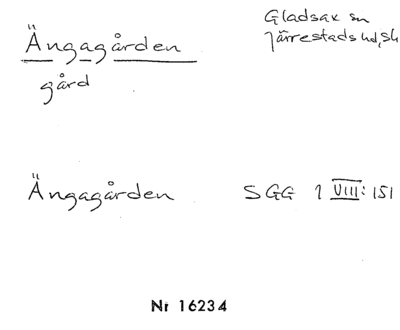 Ängagården
gård
Gladsax sn
Järrestads hd, Sk
Ängagården SGG 1 VIII: 151
Nr 16234